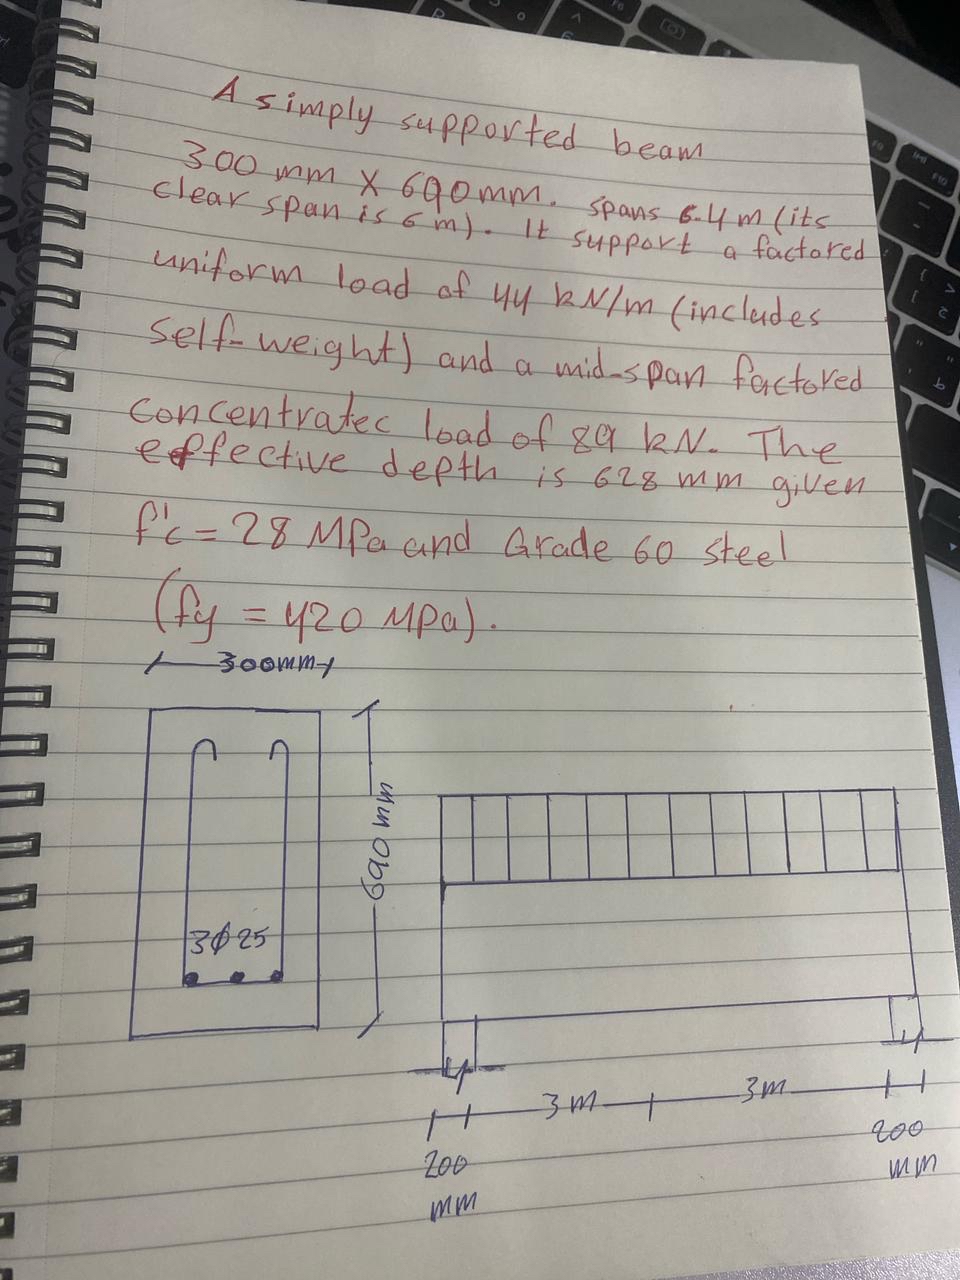 A simply supported beam
300 mm X 690mm. spans 6.4 m (its
clear span is 6 m). It support a factored
uniform load of 44 kN/m (includes
self-weight) and a mid-span factored
concentratec load of 89 kN. The
effective depth is 628 mm given
f'c = 28 MPa and Grade 60 steel
(fy = 420 MPa).
300mm
690 mm
3φ25
3m
3m
200
mm
200
mm